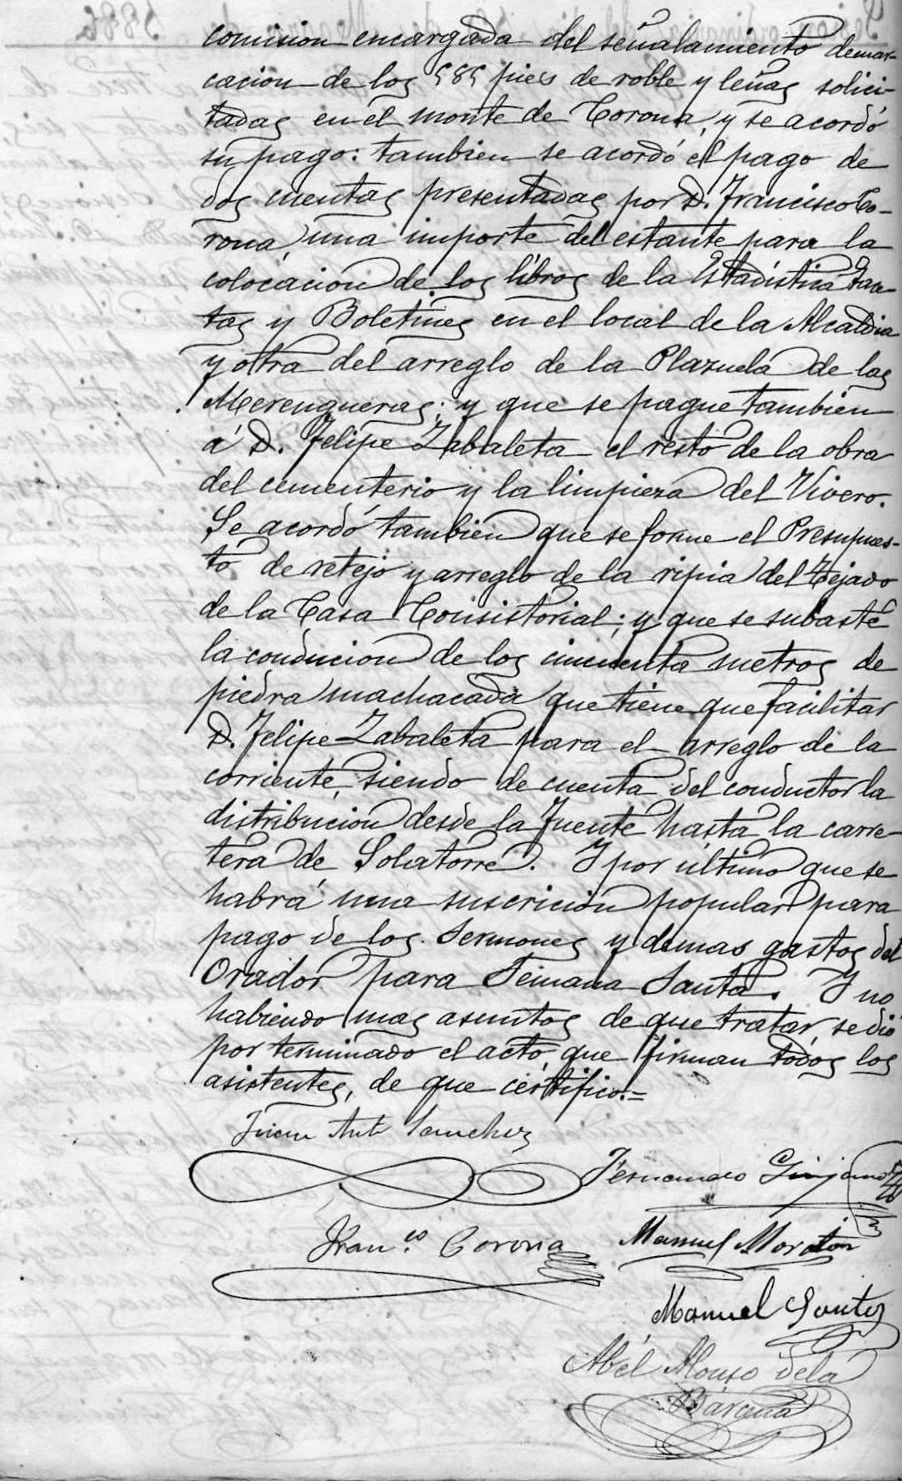 comision encargada del señalamiento demar-
cacion de los 585 pies de roble y leñas solici-
tadas en el monte de Corona, y se acordó
su pago: tambien se acordó el pago de
dos cuentas presentadas por D. Francisco Co-
rona, una importe del estante para la
colocacion de los libros de la Estadistica
tas y Boletines en el local de la Alcaldia
y otra del arreglo de la Plazuela de las
Merengueras; y que se pague tambien
á D. Felipe Zabaleta el resto de la obra
del cementerio y la limpieza del Vivero.
Se acordó tambien que se forme el Presupues-
to de retejo y arreglo de la ripia del Tejavo
de la Casa Consistorial; y que se subaste
la conducion de los cincuenta metros de
piedra machacada que tiene que facilitar
D. Felipe Zabaleta para el arreglo de la
corriente, siendo de cuenta del conductor la
distribucion desde la Fuente hasta la carre-
tera de Solatorre. Y por último que se
habrá una suscricion popular para
pago de los Sermones y demas gastos del
Orador para Semana Santa. Y no
habiendo mas asuntos de que tratar, se dió
por terminado el acto, que firman todos los
asistentes, de que certifico.=
Juan Ant Sanchez
Fernando
Fran.co Corona
Manuel
Manuel Santos
Abél Alonso de la
Bárcena